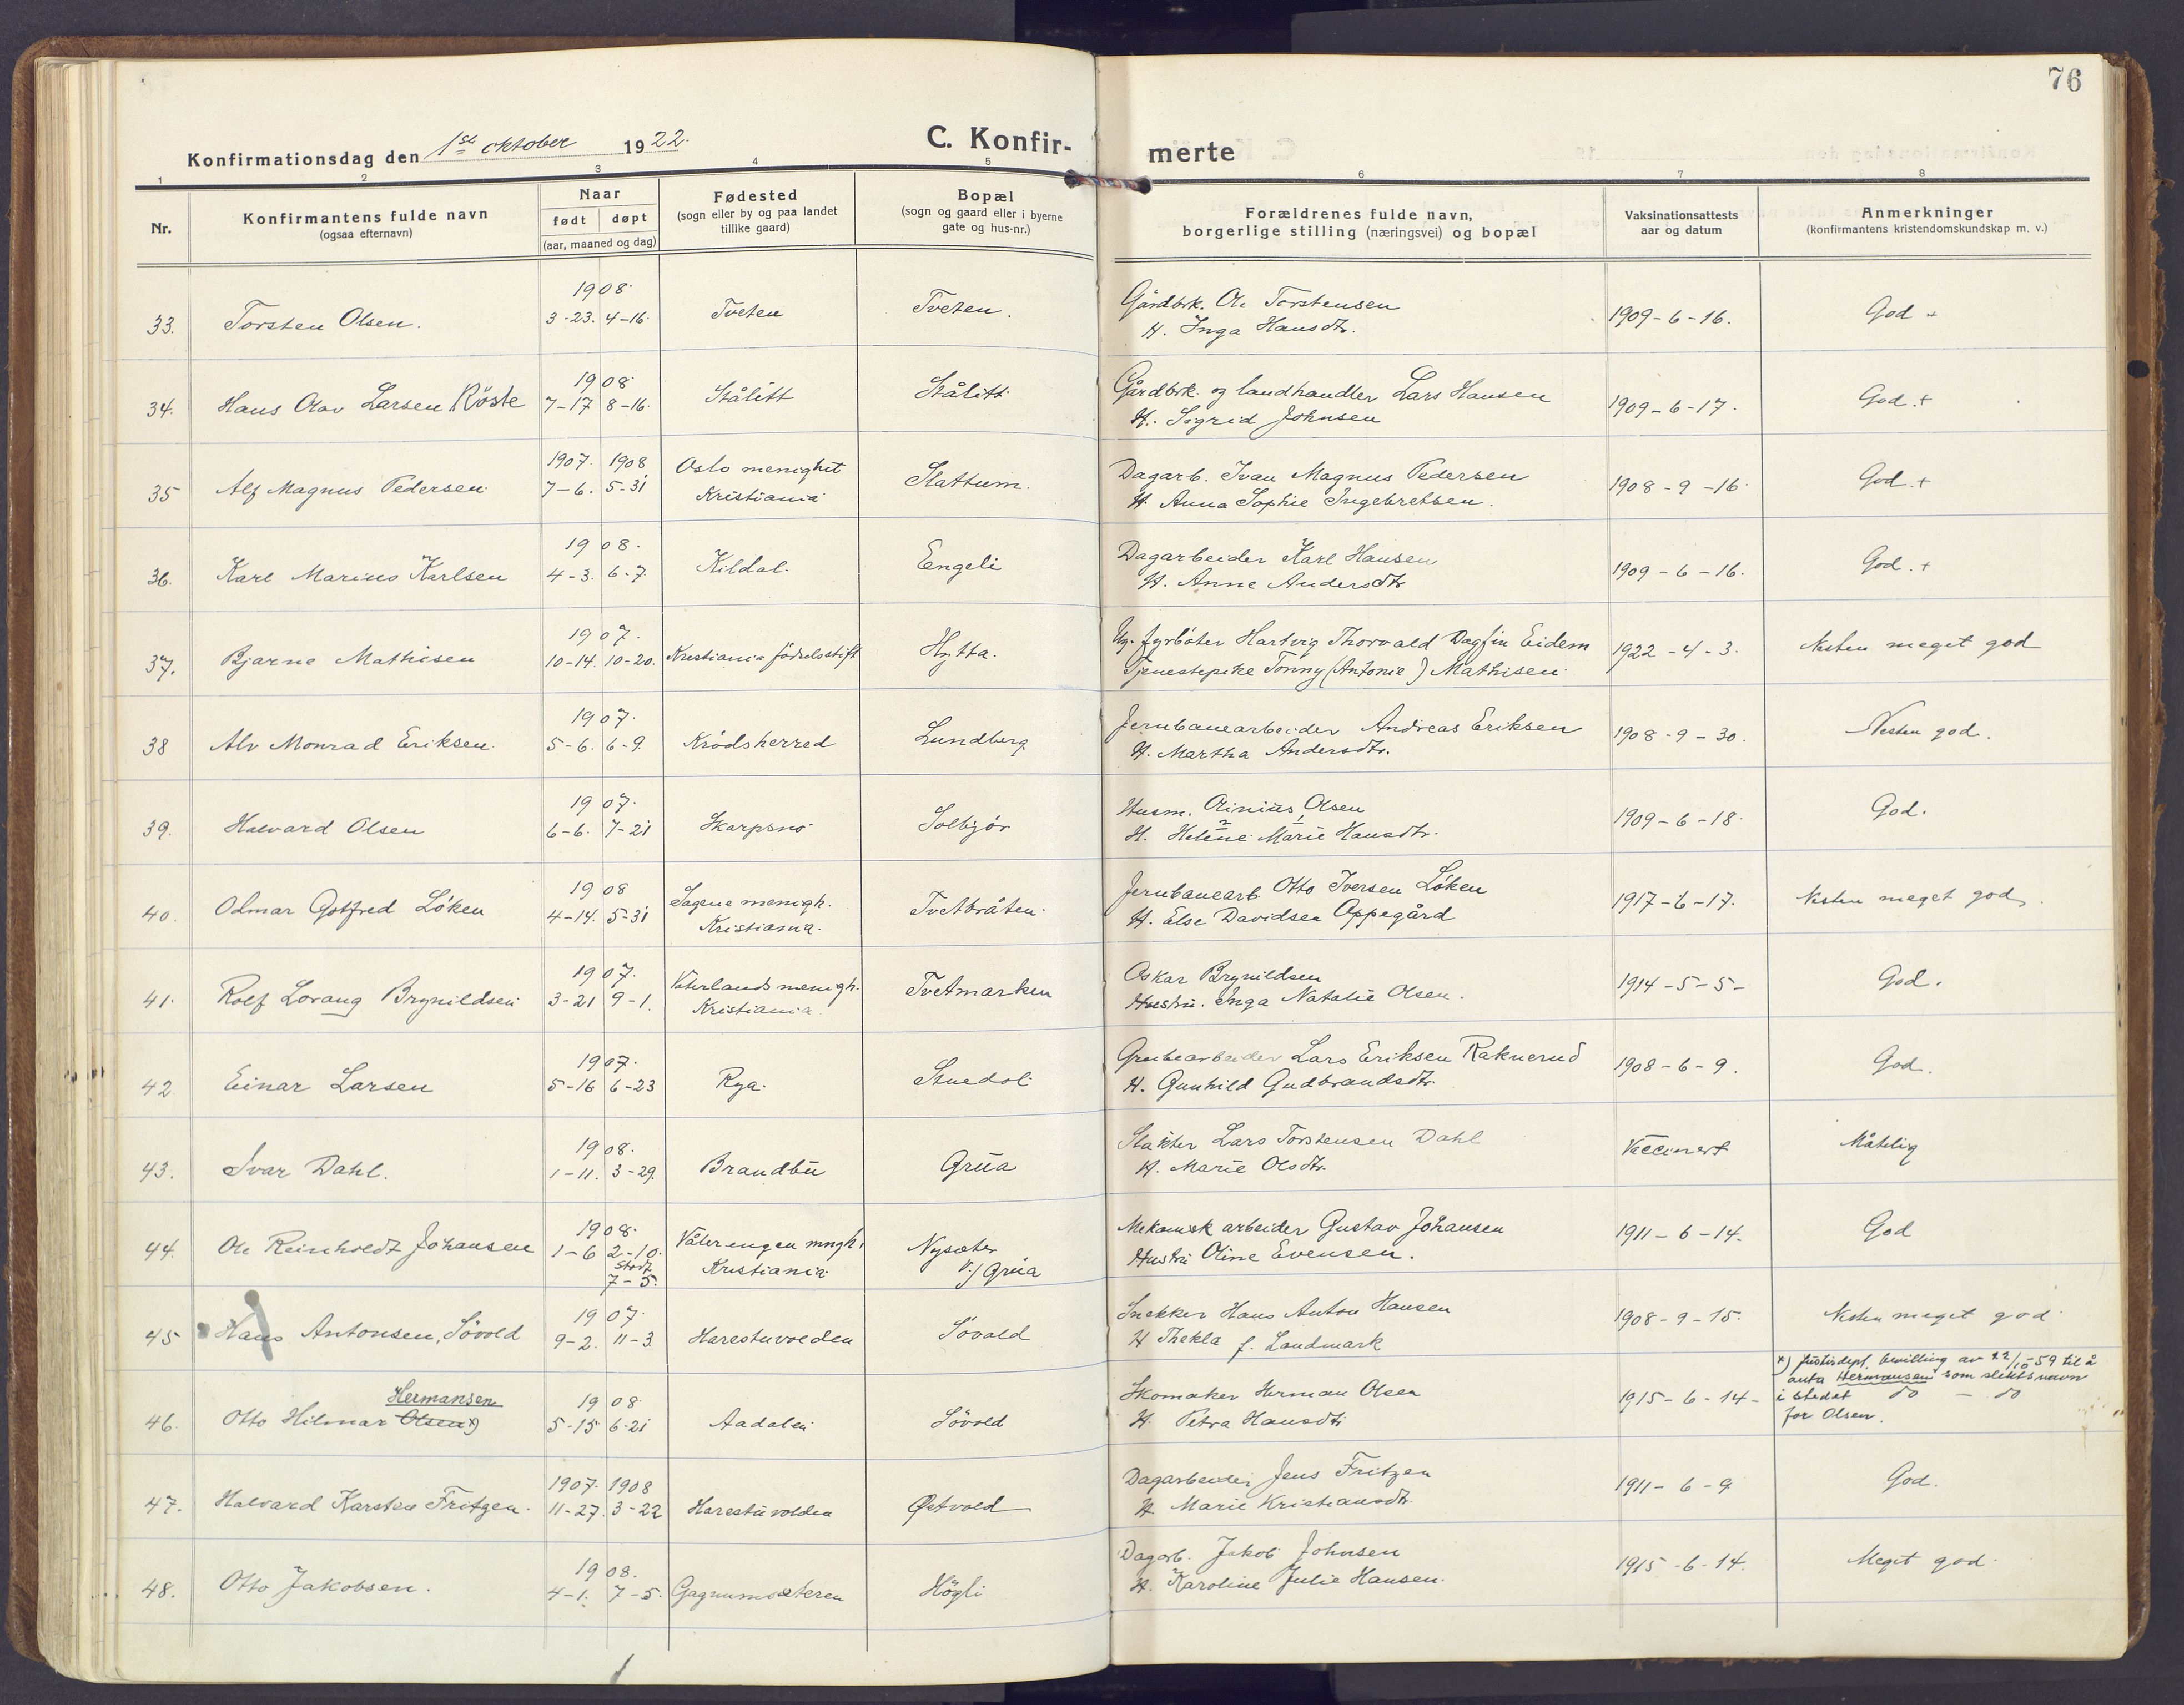 76
Konfirmationsdag den 1ste oktober 1922.
C. Konfir-
merte
1 2 3 4 5 6 7 8
Nr.
Konfirmantens fulde navn
(ogsaa efternavn)
Naar
født døpt
(aar, maaned og dag)
Fødested
(sogn eller by og paa landet
tillike gaard)
Bopæl
(sogn og gaard eller i byerne
gate og hus-nr.)
Forældrenes fulde navn,
borgerlige stilling (næringsvei) og bopæl
Vaksinationsattests
aar og datum
Anmerkninger
(konfirmantens kristendomskundskap m. v.)
1908.
33. Torsten Olsen. 3-23. 4-16. Tveten Tveten. Gårdbrk. Ole Torstensen 1909-6-16. God +
H. Inga Hansdtr.
1908
34. Hans Olav Larsen Röste 7-17 8-16. Stålitt Stålitt. Gårdbrk. og landhandler Lars Hansen 1909-6-17. God.+
H. Sigrid Johnsen
1907. 1908 Oslo menighet
35 Alf Magnus Pedersen 7-6. 5-31 Kristiania Slattum. Dagarb. Ivan Magnus Pedersen 1908-9-16. God.+
H. Anna Sophie Ingebretsen.
1908.
36. Karl Marius Karlsen 4-3. 6-7. Kildal. Engeli Dagarbeider Karl Hansen 1909-6-16. God.+
H. Anne Andersdtr
1907.
37. Bjarne Mathisen 10-14. 10-20. Kristiania födselsstift Hytta. Ug. fyrböter Hartvig Thorvald Dagfin Eidem 1922-4-3. Nesten meget god
Tjenestepike Tonny (Antonie) Mathisen
1907.
38 Alv Monrad Eriksen. 5-6. 6-9. Krödsherred Lundberg Jernbanearbeider Andreas Eriksen 1908-9-30. Nesten god.
H. Martha Andersdtr.
1907.
39. Halvard Olsen 6-6. 7-21 Skarpsno Solbjör Husm. Olsen 1909-6-18. God.
H. Helene Marie Hansdtr.
1908 Sagene menigh.
40. Odmar Gotfred Löken 4-14. 5-31 Kristiania. Tvetbråten. Jernbanearb Otto Iversen Löken 1917-6-17. Nesten meget god.
H. Else Davidsen Oppegård
1907. Vaterlands menigh.
41. Rolf Lorang Brynildsen 3-21 9-1. Kristiania. Tvetmarken Oskar Brynildsen 1914-5-5- God.
Hustru. Inga Natalie Olsen.
1907.
42 Einar Larsen 5-16 6-23 Rya. Stuedal Grubearbeider Lars Eriksen Raknerud 1908-6-9. God.
H. Gunhild Gudbrandsdtr.
1908.
43. Ivar Dahl. 1-11. 3-29. Brandbu Grua Slakter Lars Torstensen Dahl Vaccinert Måtelig
H. Marie Olsdtr.
1908.
44. Ole Reinholdt Johansen 1-6 2-10. Vålerengen mngh. Nysæter Mekanisk arbeider Gustav Johansen 1911-6-14. God
stadf. 7-5. Kristiania v./ Grua Hustru Oline Evensen.
1907.
45 Hans Antonsen, Sövold 9-2. 11-3. Harestuvolden Sövold Snekker Hans Anton Hansen 1908-9-15. Nesten meget god
H Thekla f. Landmark
Hermansen 1908
46. Otto Hilmar Olsen x) 5-15 6-21 Aadalen Sövold Skomaker Herman Olsen 1915-6-14- do - do
H. Petra Hansdtr
x) Justisdept. bevilling av 22/10-59 til å
anta Hermansen som slektsnavn
i stedet
for Olsen.
1907. 1908
47. Halvard Karsten Fritzen. 11-27. 3-22 Harestuvolden Østvold Dagarbeider Jens Fritzen 1911-6-9 God.
H. Marie Kristiansdtr.
1908.
48. Otto Jakobsen. 4-1. 7-5. Gagnumsæteren Högli Dagarb. Jakob Johnsen 1915-6-14. Meget god.
H. Karoline Julie Hansen.